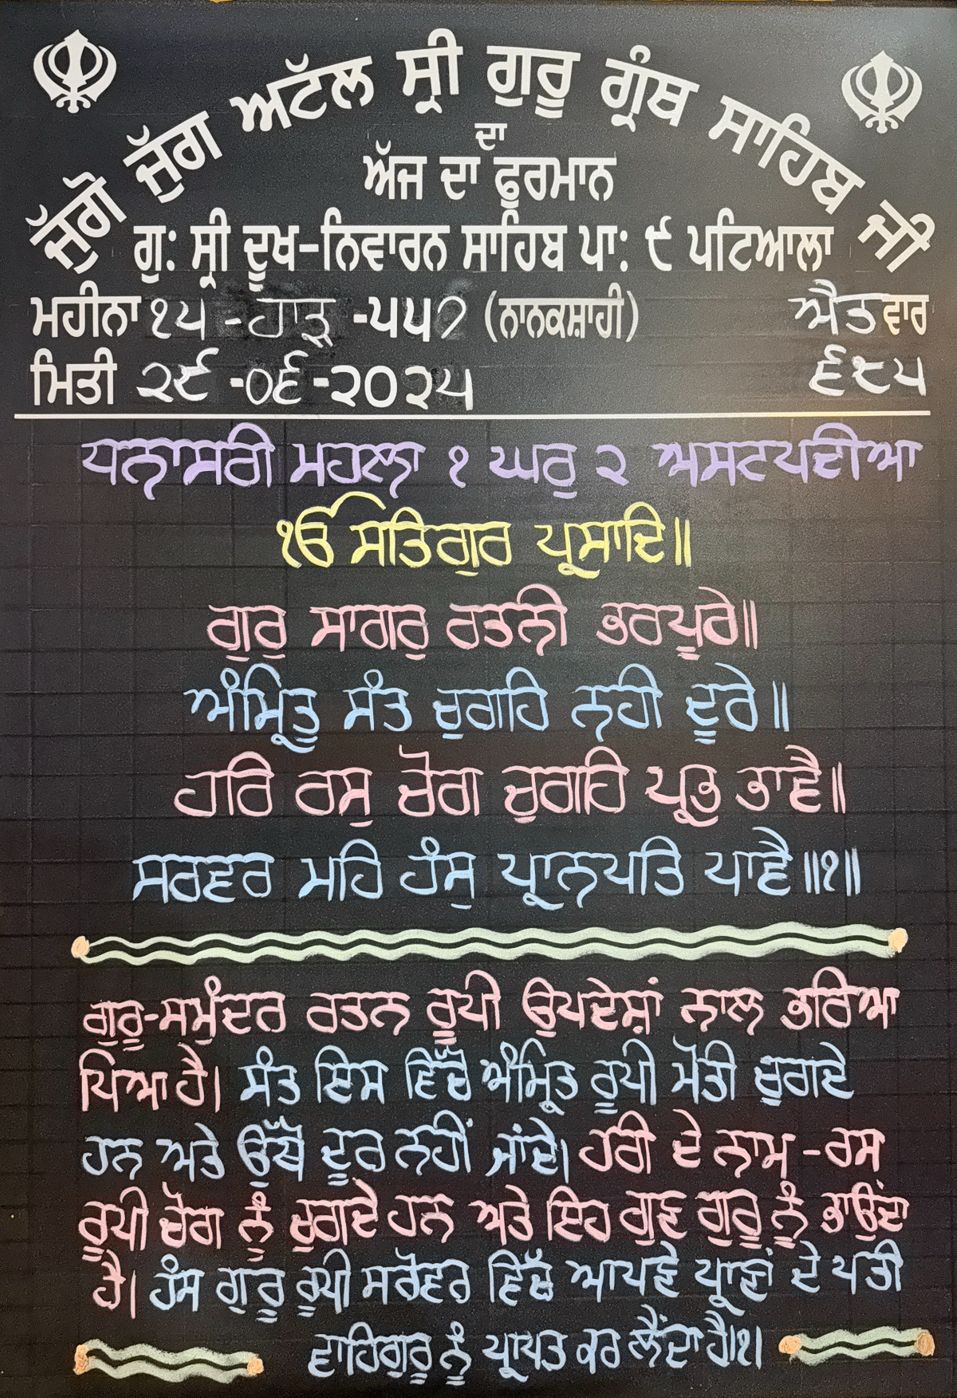 ਜੁੱਗੋ ਜੁੱਗ ਅਟੱਲ ਸ੍ਰੀ ਗੁਰੂ ਗ੍ਰੰਥ ਸਾਹਿਬ ਜੀ
ਦਾ
ਅੱਜ ਦਾ ਫੁਰਮਾਨ
ਗੁ: ਸ੍ਰੀ ਦੂਖ-ਨਿਵਾਰਨ ਸਾਹਿਬ ਪਾ: ੯ ਪਟਿਆਲਾ
ਮਹੀਨਾ ੧੫ -ਹਾੜ੍ਹ -੫੫੭ (ਨਾਨਕਸ਼ਾਹੀ) ਐਤਵਾਰ
ਮਿਤੀ ੨੯ -੦੬ -੨੦੨੫ ੬੮੫
ਧਨਾਸਰੀ ਮਹਲਾ ੧ ਘਰੁ ੨ ਅਸਟਪਦੀਆ
ੴ ਸਤਿਗੁਰ ਪ੍ਰਸਾਦਿ॥
ਗੁਰੁ ਸਾਗਰੁ ਰਤਨੀ ਭਰਪੂਰੇ॥
ਅੰਮ੍ਰਿਤੁ ਸੰਤ ਚੁਗਹਿ ਨਹੀ ਦੂਰੇ॥
ਹਰਿ ਰਸੁ ਚੋਗ ਚੁਗਹਿ ਪ੍ਰਭ ਭਾਵੈ॥
ਸਰਵਰ ਮਹਿ ਹੰਸੁ ਪ੍ਰਾਨਪਤਿ ਪਾਵੈ॥੧॥
ਗੁਰੂ-ਸਮੁੰਦਰ ਰਤਨ ਰੂਪੀ ਉਪਦੇਸ਼ਾਂ ਨਾਲ ਭਰਿਆ
ਪਿਆ ਹੈ। ਸੰਤ ਇਸ ਵਿੱਚੋਂ ਅੰਮ੍ਰਿਤ ਰੂਪੀ ਮੋਤੀ ਚੁਗਦੇ
ਹਨ ਅਤੇ ਉੱਥੋਂ ਦੂਰ ਨਹੀਂ ਜਾਂਦੇ। ਹਰੀ ਦੇ ਨਾਮ -ਰਸ
ਰੂਪੀ ਚੋਗ ਨੂੰ ਚੁਗਦੇ ਹਨ ਅਤੇ ਇਹ ਗੁਣ ਗੁਰੂ ਨੂੰ ਭਾਉਂਦਾ
ਹੈ। ਹੰਸ ਗੁਰੂ ਰੂਪੀ ਸਰੋਵਰ ਵਿੱਚੋਂ ਆਪਣੇ ਪ੍ਰਾਣਾਂ ਦੇ ਪਤੀ
ਵਾਹਿਗੁਰੂ ਨੂੰ ਪ੍ਰਾਪਤ ਕਰ ਲੈਂਦਾ ਹੈ।੧।